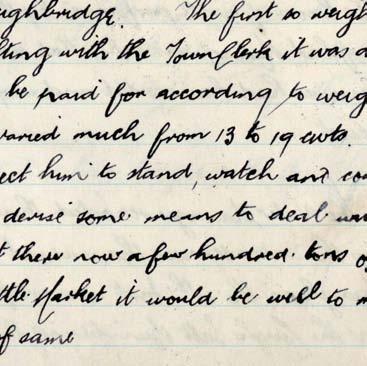 ighbridge. The first so weigh
lting with the Town Clerk it was a
be paid for according to weig
varied much from 13 to 19 cwts.
ect him to stand, watch and co
devise some means to deal w
t there now a few hundred tons o
ttle Market it would be well to m
of same